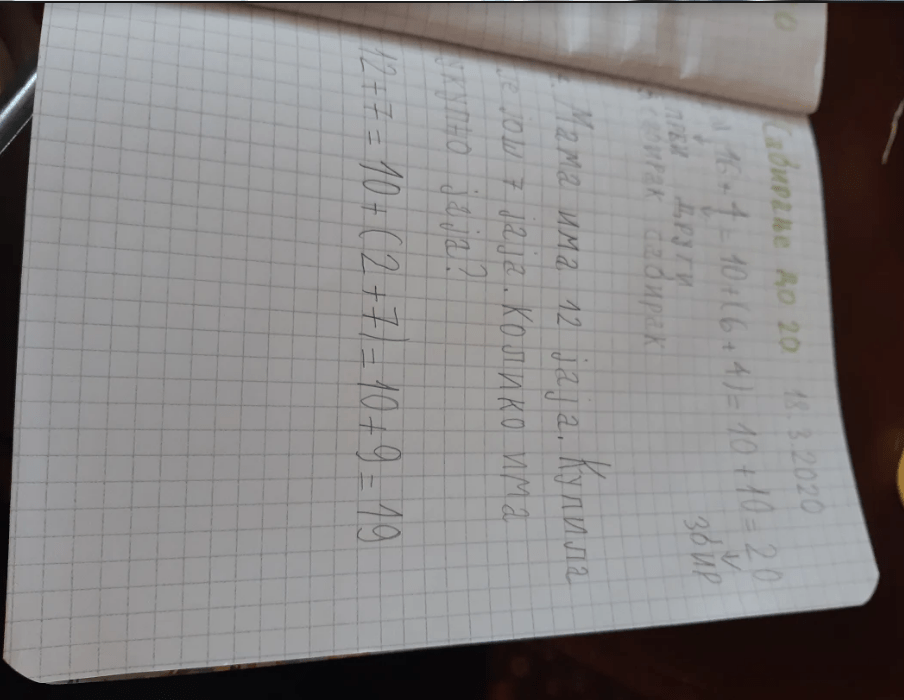 Сабирање до 20 18.3.2020
16 + 4 = 10 + (6 + 4) = 10 + 10 = 20
први други збир
сабирак сабирак
Мама има 12 јаја. Купила
је још 7 јаја. Колико има
укупно јаја?
12 + 7 = 10 + (2 + 7) = 10 + 9 = 19